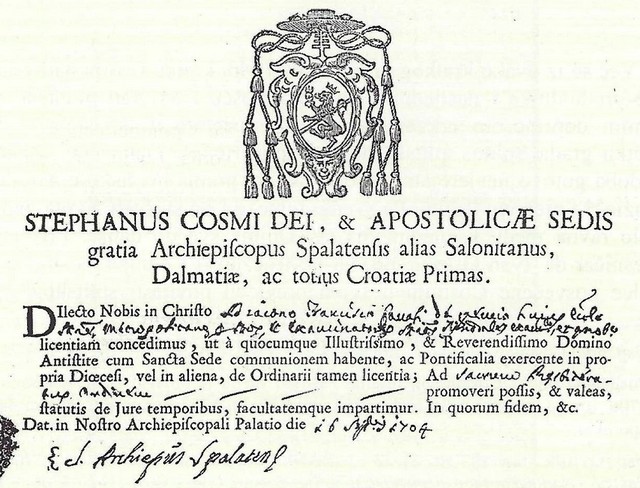 STEPHANUS COSMI DEI, & APOSTOLICÆ SEDIS
gratia Archiepiscopus Spalatensis alias Salonitanus,
Dalmatiæ, ac totius Croatiæ Primas.
DIlecto Nobis in Christo Diacono
licentiam concedimus, ut à quocumque Illustrissimo, & Reverendissimo Domino
Antistite cum Sancta Sede communionem habente, ac Pontificalia exercente in pro-
pria Diœcesi, vel in aliena, de Ordinarii tamen licentia; Ad Sacrum
promoveri possis, & valeas,
statutis de Jure temporibus, facultatemque impartimur. In quorum fidem, &c.
Dat. in Nostro Archiepiscopali Palatio die 16 1704
S. Archiepũs Spalaten